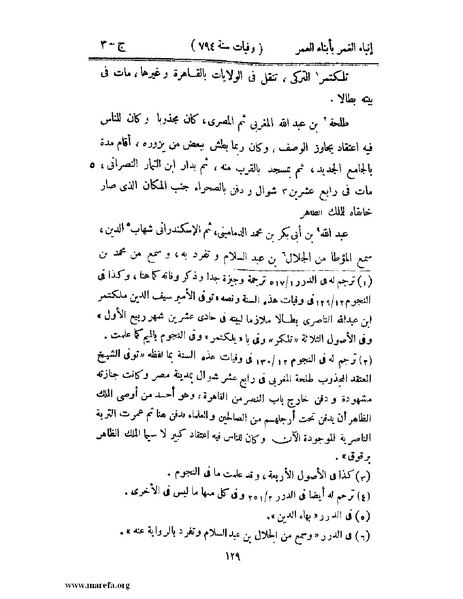 إنباء الغمر بأبناء العمر ( وفيات سنة ٧٩٤ ) ج - ٣
تلكتمر١ التركى ، تنقل فى الولايات بالقاهرة و غيرها ، مات فى
بيته بطالا .
طلحة٢ بن عبد الله المغربى ثم المصرى ، كان مجذوبا و كان للناس
فيه اعتقاد يجاوز الوصف ، وكان ربما يطش ببعض من يزوره ، أقام مدة
بالجامع الجديد ، ثم بمسجد بالقرب منه ، ثم بدار ابن التمار النصرانى ، ٥
مات فى رابع عشرين٣ شوال و دفن بالصحراء جنب المكان الذى صار
خانقاه للملك الظاهر
عبد الله٤ بن أبى بكر بن محمد الدمامينى ، ثم الإسكندرانى شهاب٥ الدين ،
سمع الموطأ من الجلال٦ بن عبد السلام و تفرد به ، و سمع من محمد بن
(١) ترجم له فى الدرر ٥١٧/١ ترجمة وجيزة جدا وذكر وفاته كما هنا ، وكذا فى
النجوم ١٢٩/١٢ فى وفيات هذه السنة ونصه «توفى الأمير سيف الدين ملكتمر
ابن عبدالله الناصرى بطالا ملازما لبيته فى حادى عشرين شهر ربيع الأول»
وفى الأصول الثلاثة «تلكتمر» وفى با «يلكتمر» وفى النجوم بالميم كما علمت .
(٢) ترجم له فى النجوم ١٣٠/١٢ فى وفيات هذه السنة بما لفظه «توفى الشيخ
المعتقد المجذوب طلحة المغربى فى رابع عشر شوال بمدينة مصر وكانت جنازته
مشهودة و دفن خارج باب النصر من القاهرة ، وهو أحد من أوصى الملك
الظاهر أن يدفن تحت أرجلهم من الصالحين والعلماء فدفن هنا ثم عمرت التربة
الناصرية الموجودة الآن وكان للناس فيه اعتقاد كبير لا سيما الملك الظاهر
برقوق» .
(٣) كذا فى الأصول الأربعة ، وقد علمت ما فى النجوم .
(٤) ترجم له أيضا فى الدرر ٢٥١/٢ وفى كل منها ما ليس فى الأخرى .
(٥) فى الدرر «بهاء الدين» .
(٦) فى الدرر «وسمع من الجلال بن عبد السلام وتفرد بالرواية عنه» .
١٢٩
www.marefa.org